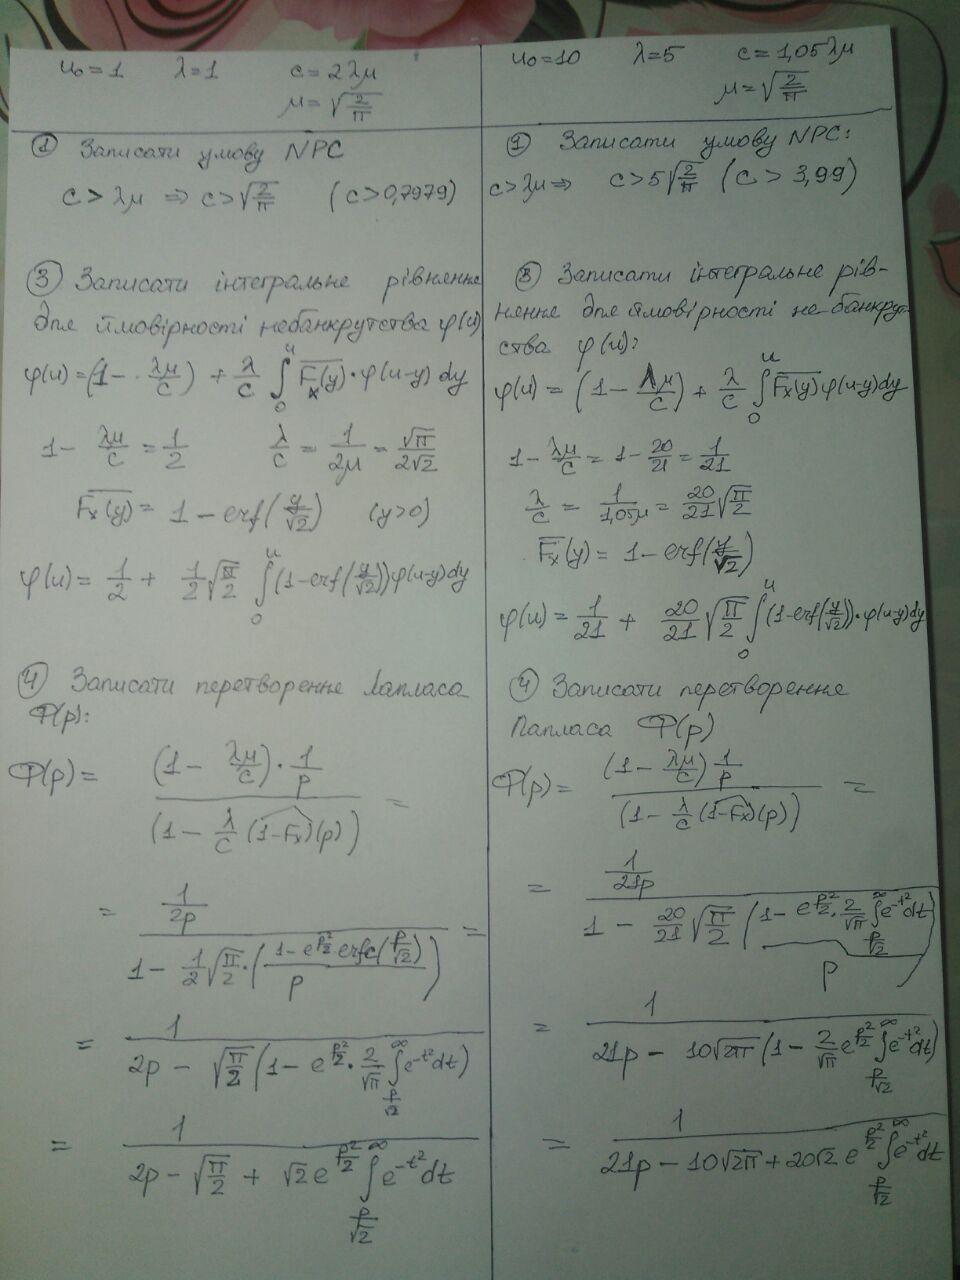 u₀ = 1 λ = 1 c = 2λμ
μ = √(2/π)
① Записати умову NPC
c > λμ ⇒ c > √(2/π) (c > 0,7979)
③ Записати інтегральне рівняння
для ймовірності небанкрутства φ(u)
φ(u) = (1 - λμ/c) + λ/c ∫₀ᵘ F̅ₓ(y)·φ(u-y)dy
1 - λμ/c = 1/2 λ/c = 1/(2μ) = √π/(2√2)
F̅ₓ(y) = 1 - erf(y/√2) (y>0)
φ(u) = 1/2 + 1/2 √(π/2) ∫₀ᵘ (1-erf(y/√2))φ(u-y)dy
④ Записати перетворення Лапласа
Φ(p):
Φ(p) = (1 - λμ/c)·1/p / (1 - λ/c (1-Fₓ)^(p)) =
= 1/(2p) / (1 - 1/2 √(π/2)·((1 - e^(p²/2) erfc(p/√2))/p)) =
= 1 / (2p - √(π/2) (1 - e^(p²/2)·2/√π ∫_(p/√2)^∞ e^(-t²)dt))
= 1 / (2p - √(π/2) + √2 e^(p²/2) ∫_(p/√2)^∞ e^(-t²)dt)
u₀ = 10 λ = 5 c = 1,05λμ
μ = √(2/π)
① Записати умову NPC:
c > λμ ⇒ c > 5√(2/π) (c > 3,99)
③ Записати інтегральне рів-
няння для ймовірності небанкрут-
ства φ(u):
φ(u) = (1 - λμ/c) + λ/c ∫₀ᵘ F̅ₓ(y)φ(u-y)dy
1 - λμ/c = 1 - 20/21 = 1/21
λ/c = 1/(1,05μ) = 20/21 √(π/2)
F̅ₓ(y) = 1 - erf(y/√2)
φ(u) = 1/21 + 20/21 √(π/2) ∫₀ᵘ (1-erf(y/√2))·φ(u-y)dy
④ Записати перетворення
Лапласа Φ(p)
Φ(p) = (1 - λμ/c) 1/p / (1 - λ/c (1-Fₓ)^(p)) =
= 1/(21p) / (1 - 20/21 √(π/2) ((1 - e^(p²/2)·2/√π ∫_(p/√2)^∞ e^(-t²)dt)/p))
= 1 / (21p - 10√(2π) (1 - 2/√π e^(p²/2) ∫_(p/√2)^∞ e^(-t²)dt))
= 1 / (21p - 10√(2π) + 20√2 e^(p²/2) ∫_(p/√2)^∞ e^(-t²)dt)